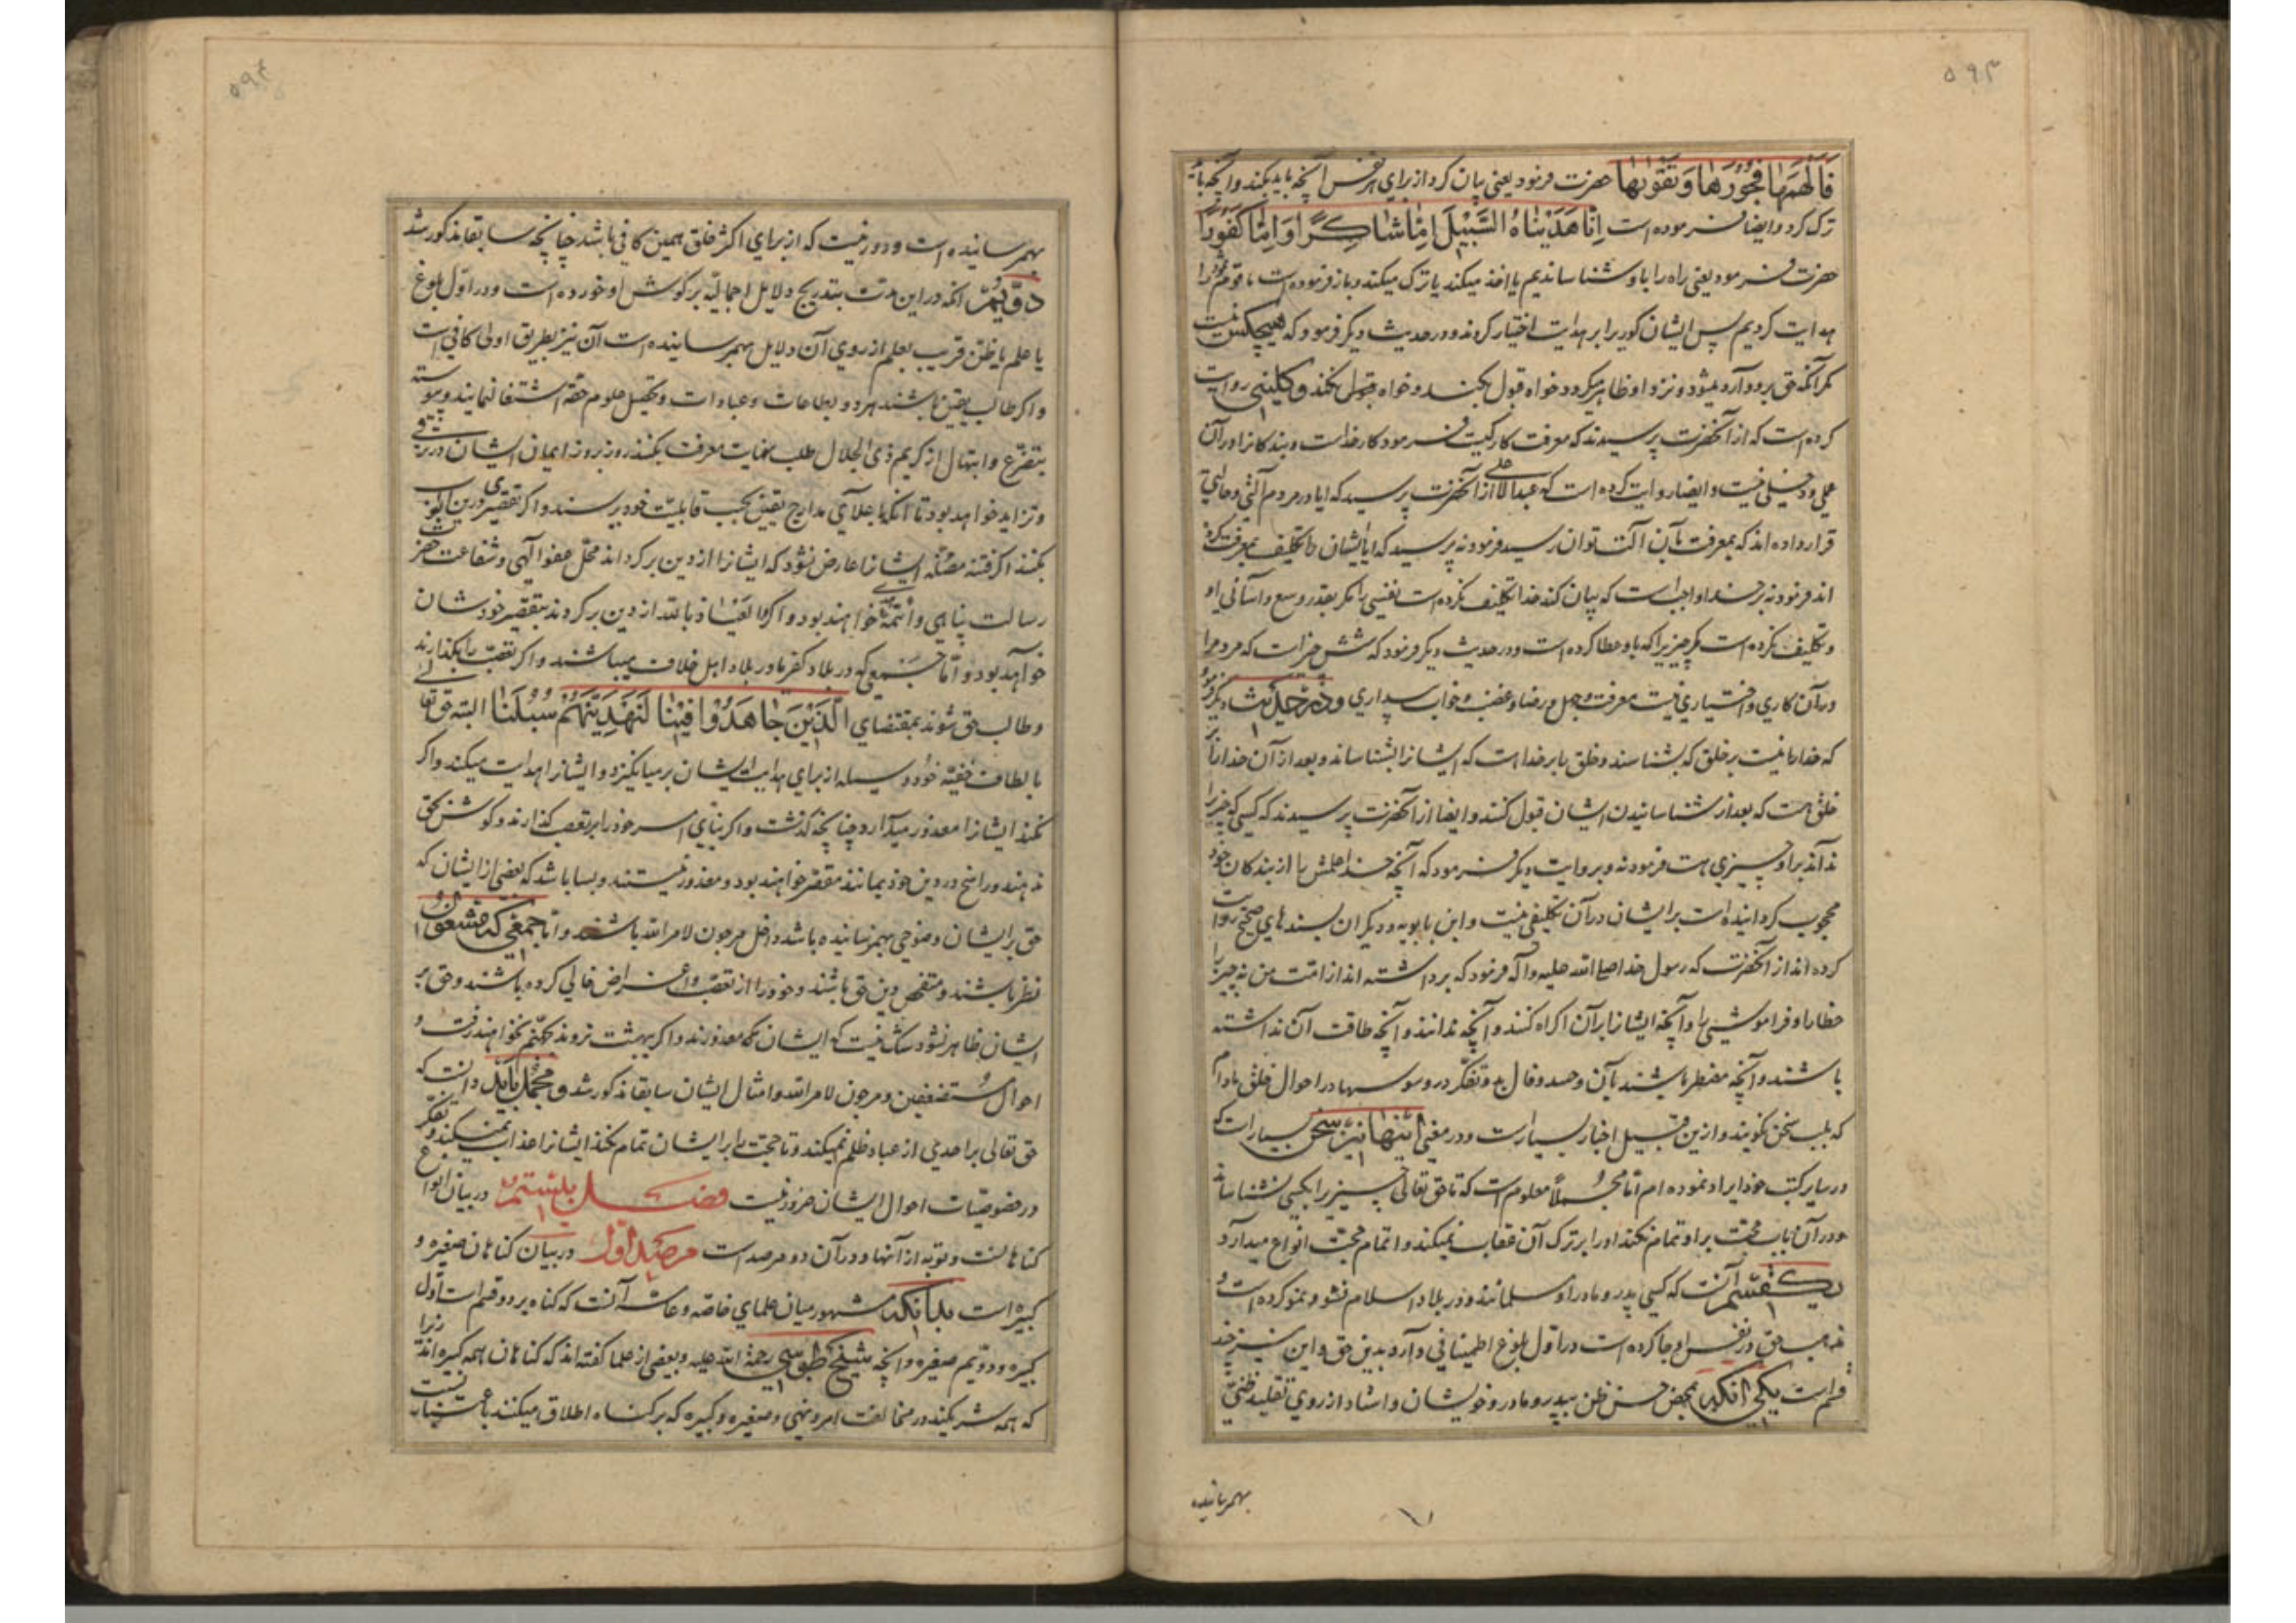 ۵۹۳
فَاَلْهَمَهٰا فُجُوْرَهٰا وَتَقْوٰیهٰا حضرت فرمود یعنی بیان کرد از برای هر نفس آنچه باید بکند و آنچه باید
ترک کرد و ایضا فرموده است اِنّٰا هَدَیْنٰاهُ السَّبِیْلَ اِمّٰا شٰاکِرًا وَاِمّٰا کَفُوْرًا
حضرت فرمود یعنی راه را باو شناساندیم یا اخذ میکند یا ترک میکند و باز فرموده است ما قوم ثمود را
هدایت کردیم پس ایشان کوریرا بر هدایت اختیار کردند و در حدیث دیگر فرمود که هیچکس نیست
مگر آنکه حق برو وارد میشود و نزد او ظاهر میگردد خواه قبول بکند و خواه قبول نکند و کلینی روایت
کرده است که از آنحضرت پرسیدند که معرفت کار کیست فرمود کار خداست و بندکانرا در آن
عملی و دخیلی نیست و ایضا روایت کرده است که عبدالاعلی از آنحضرت پرسید که ایا در مردم آلتی و حالتی
قرار داده اند که بمعرفت بآن آلت توان رسید فرمود نه پرسید که ایا ایشانرا تکلیف بمعرفت کرده
اند فرمود نه بر خدا واجبست که بیان کند خدا تکلیف نکرده است نفسی را مگر بقدر وسع و آسانی او
و تکلیف نکرده است مگر چیزیرا که باو عطا کرده است و در حدیث دیگر فرمود که شش چیز است که مردم را
در آن کاری و اختیاری نیست معرفت و جهل و رضا و غضب و خواب و بیداری و در حدیث دیگر فرمود
که خدا را نیست بر خلق که بشناسند و خلق را بر خدا است که ایشانرا بشناساند و بعد از آن خدا را بر
خلق هست که بعد از شناسانیدن ایشان قبول کنند و ایضا از آنحضرت پرسیدند که کسی که چیزیرا
نداند بر او چیزی هست فرمود نه و بروایت دیگر فرمود که آنچه خدا علمش را از بندکان خود
محجوب کردانیده است بر ایشان در آن تکلیفی نیست و ابن بابویه و دیگران بسندهای صحیح روایت
کرده اند از آنحضرت که رسول خدا صلی الله علیه و آله فرمود که برداشته اند از امت من نه چیز را
خطا را و فراموشی را و آنچه ایشانرا بر آن اکراه کنند و آنچه ندانند و آنچه طاقت آن نداشته
باشند و آنچه مضطر باشند بآن و حسد و فال بد و تفکر در وسوسه‌ها در احوال خلق مادام
که بلب سخن نکویند و ازین قبیل اخبار بسیار است و در معنی اینها نیز سخن بسیار است که
در سایر کتب خود ایراد نموده ام اما مجملًا معلوم است که تا حق تعالی چیزیرا بکسی نشناساند
و در آن باب حجت بر او تمام نکند او را بر ترک آن عقاب نمیکند و اتمام حجت انواع میدارد
یک قسم آنست که کسی پدر و مادر او مسلمانند و در بلاد اسلام نشو و نمو کرده است و
مذهب حق در نفس او جا کرده است در اول بلوغ اطمینانی دارد بدین حق و این نیز چند
قسم است یکی آنکه بمحض حسن ظن بپدر و مادر و خویشان و استاد از روی تقلید ظنی
بهمرسانیده
۵۹۴
بهمرسانیده است و دور نیست که از برای اکثر خلق همین کافی باشد چنانچه سابقا مذکور شد
دویم آنکه در این مدت بتدریج دلایل اجمالیه بر کوش او خورده است و در اول بلوغ
یا علم یا ظن قریب بعلم از روی آن دلایل بهمرسانیده است آن نیز بطریق اولی کافی است
و اگر طالب یقین باشند هر دو بطاعات و عبادات و تحصیل علوم حقه اشتغال نمایند و پیوسته
بتضرع و ابتهال از کریم ذی الجلال طلب نهایت معرفت بکنند روز بروز ایمان ایشان در ترقی
و تزاید خواهد بود تا آنکه باعلای مدارج یقین بحسب قابلیت خود برسند و اگر تقصیری درین ابواب
بکنند اگر فتنه مضله ایشانرا عارض نشود که ایشانرا از دین برکرداند محل عفو الهی و شفاعت حضرت
رسالت پناهی و ائمه خواهند بود و اگر العیاذ بالله از دین برکردند بتقصیر خودشان
خواهد بود و اما جمعی که در بلاد کفر یا در بلاد اهل خلاف میباشند و اگر تعصب را بگذارند
و طالب حق شوند بمقتضای اَلَّذِیْنَ جٰاهَدُوْا فِیْنٰا لَنَهْدِیَنَّهُمْ سُبُلَنٰا البته حق تعالی
بالطاف خفیه خود وسیله از برای هدایت ایشان برمیانگیزد و ایشانرا هدایت میکند و اگر
نکند ایشانرا معذور میدارد چنانچه گذشت و اگر بنای امر خود را بر تعصب گذارند و گوش بحق
ندهند و راسخ در دین خود بمانند مقصر خواهند بود و معذور نیستند و بسا باشد که بعضی از ایشان که
حق بر ایشان وضوحی بهمرسانیده باشد داخل مرجون لامر الله باشند و اما جمعی که مشغول
نظر باشند و متفحص دین حق باشند و خود را از تعصب و اغراض خالی کرده باشند و حق بر
ایشان ظاهر نشود شک نیست که ایشان معذورند و اگر ببهشت نروند بجهنم نخواهند رفت و
احوال مستضعفین و مرجون لامر الله و امثال ایشان سابقا مذکور شد و مجملا باید دانست که
حق تعالی بر احدی از عباد ظلم نمیکند و تا حجت را بر ایشان تمام نکند ایشانرا عذاب نمیکند و تفکر
در خصوصیات احوال ایشان ضرور نیست فصل بیستم در بیان انواع
کناهانست و توبه از آنها و در آن دو مرصد است مرصد اول در بیان کناهان صغیره و
کبیره است بدانکه مشهور میان علمای خاصه و عامه آنست که کناه بر دو قسم است اول
کبیره و دویم صغیره و آنچه شیخ طوسی رحمة الله علیه و بعضی از علما کفته اند که کناهان همه کبیره اند زیرا
که همه شریکند در مخالفت امر و نهی و صغیره و کبیره که بر کناه اطلاق میکنند باعتبار نسبت